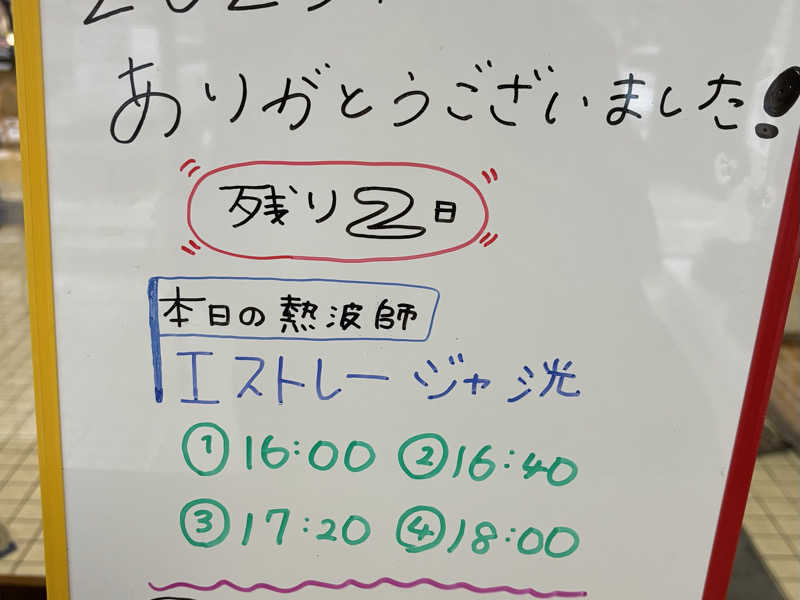 ありがとうございました!
残り2日
本日の熱波師
エストレージャ洸
①16:00 ②16:40
③17:20 ④18:00